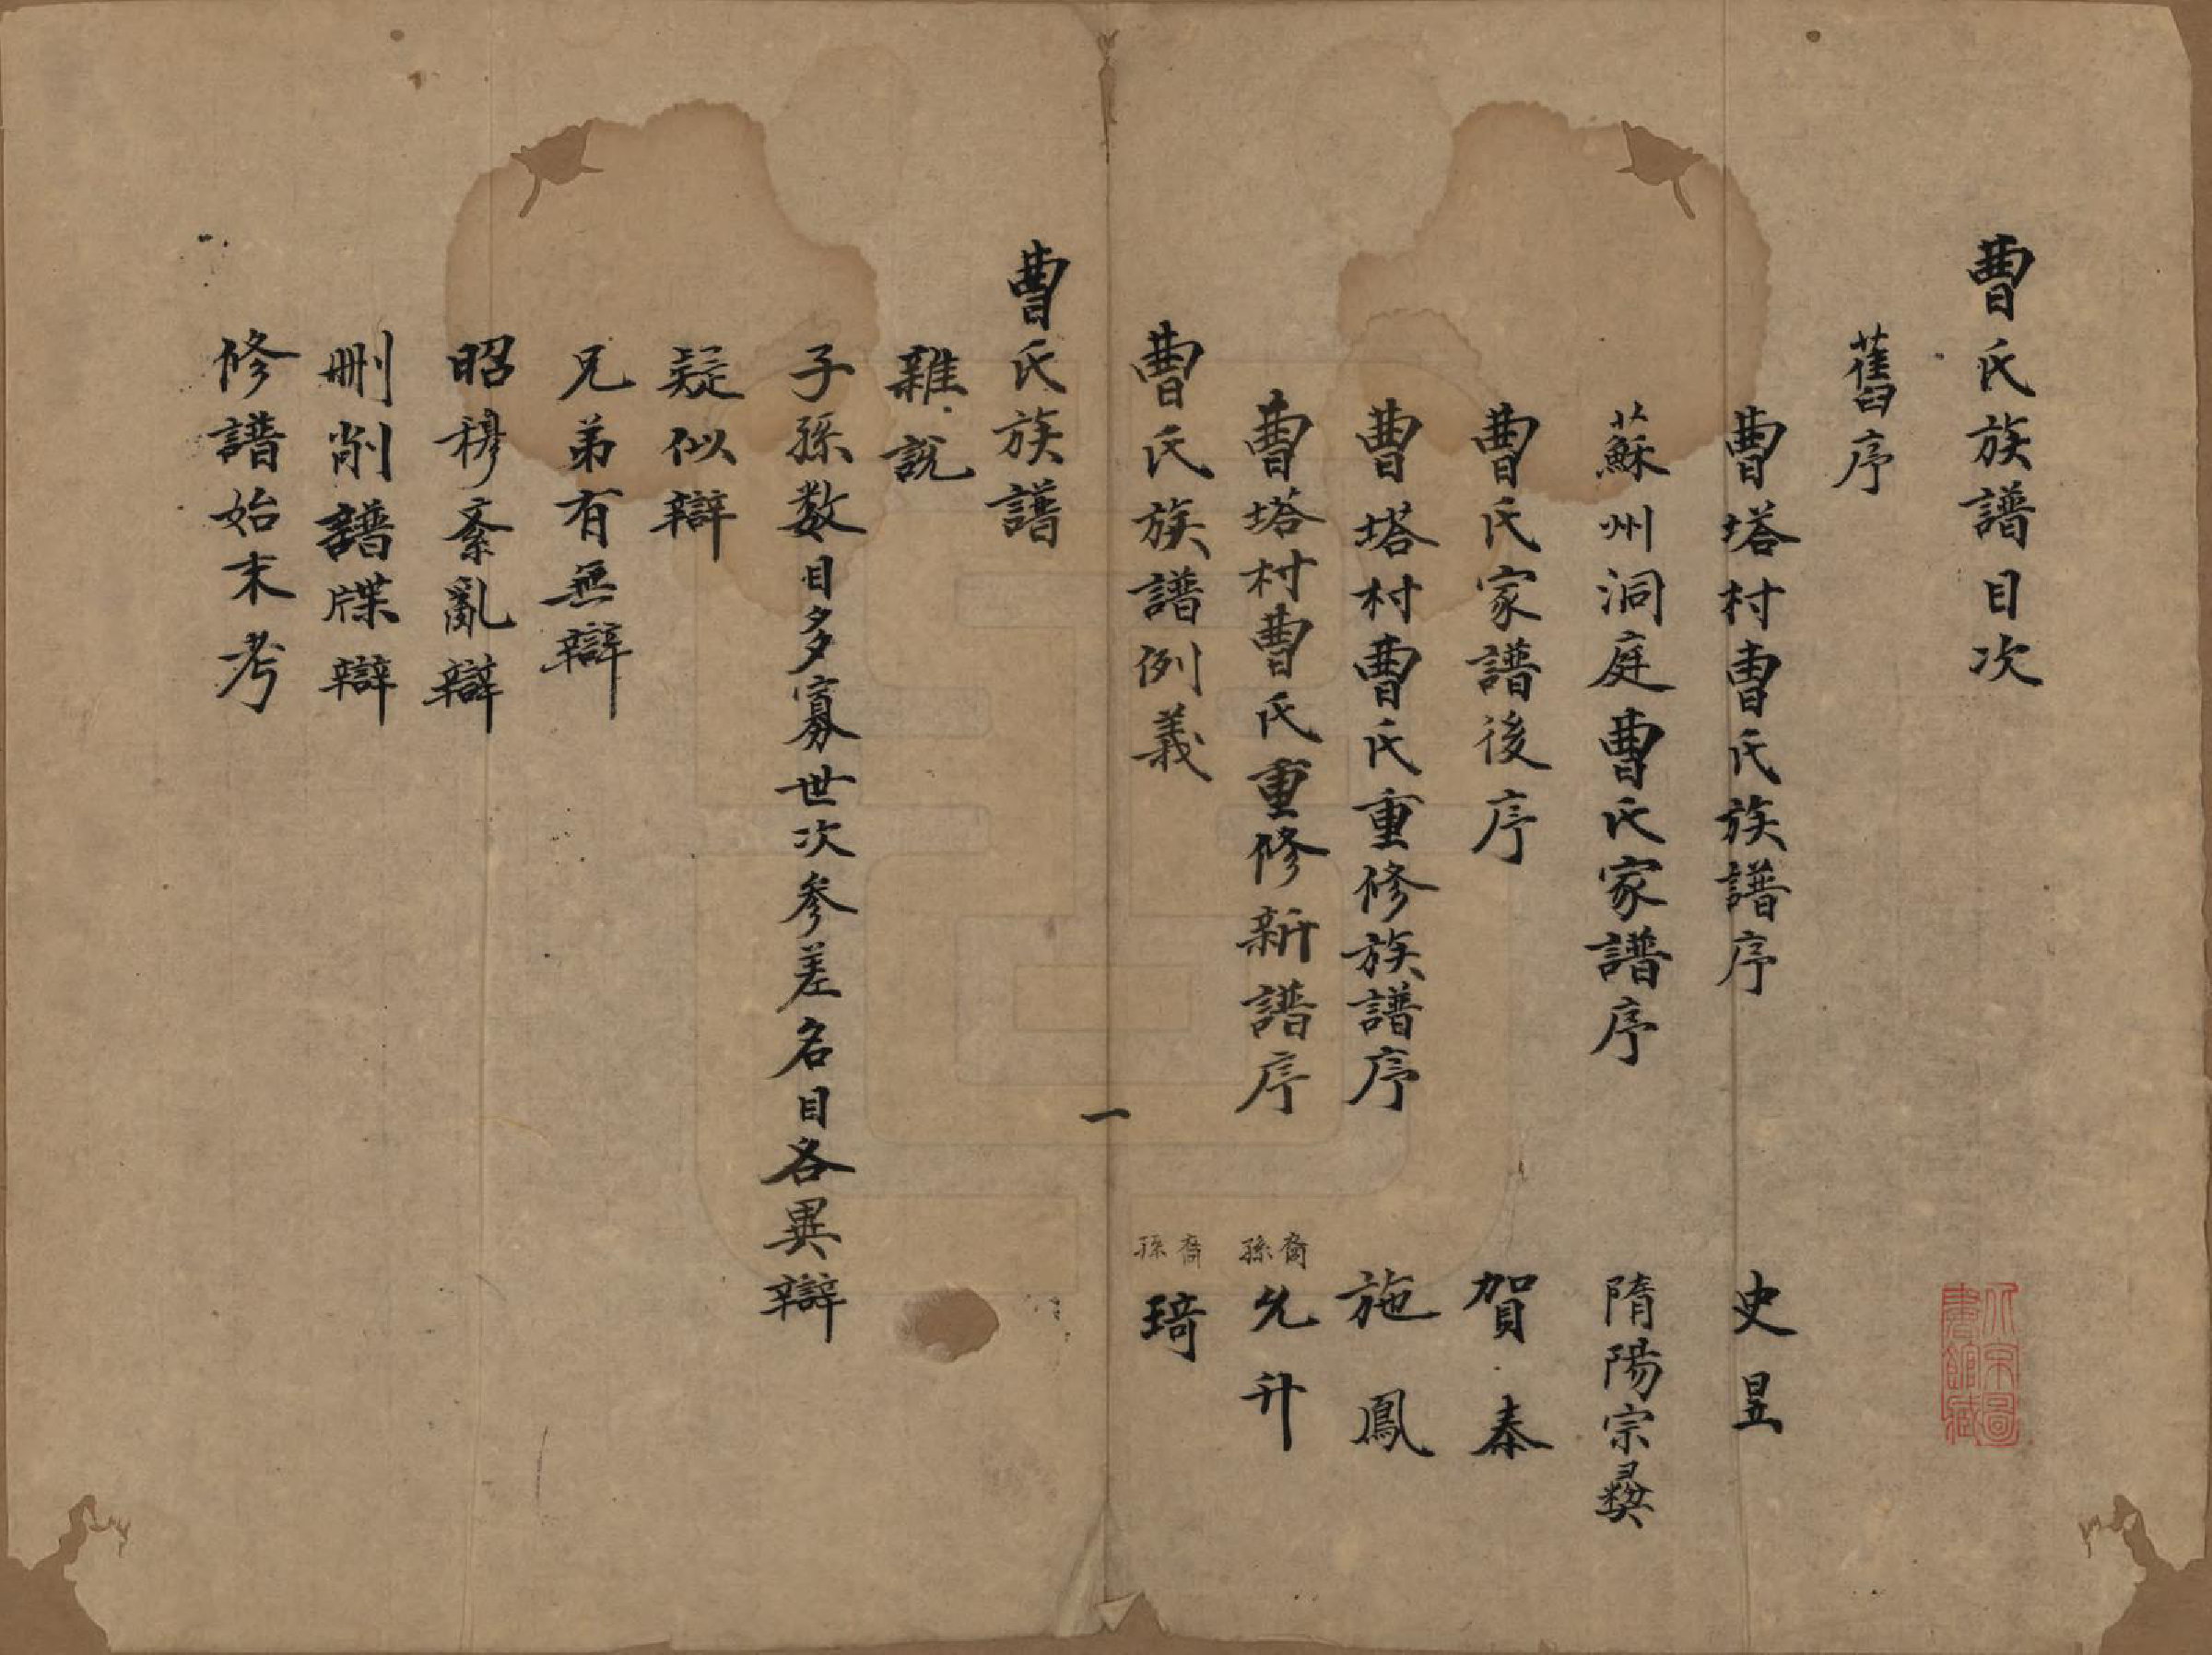 曹氏族譜目次
舊序
曹塔村曹氏族譜序 史昱
蘇州洞庭曹氏家譜序 隋陽宗彝
曹氏家譜後序 賀泰
曹塔村曹氏重修族譜序 施鳳
曹塔村曹氏重修新譜序 裔孫允升
曹氏族譜例義 裔孫琦
一
曹氏族譜
雜說
子孫数目多寡世次參差名目各異辯
疑似辯
兄弟有無辯
昭穆紊亂辯
刪削譜牒辯
修譜始末考